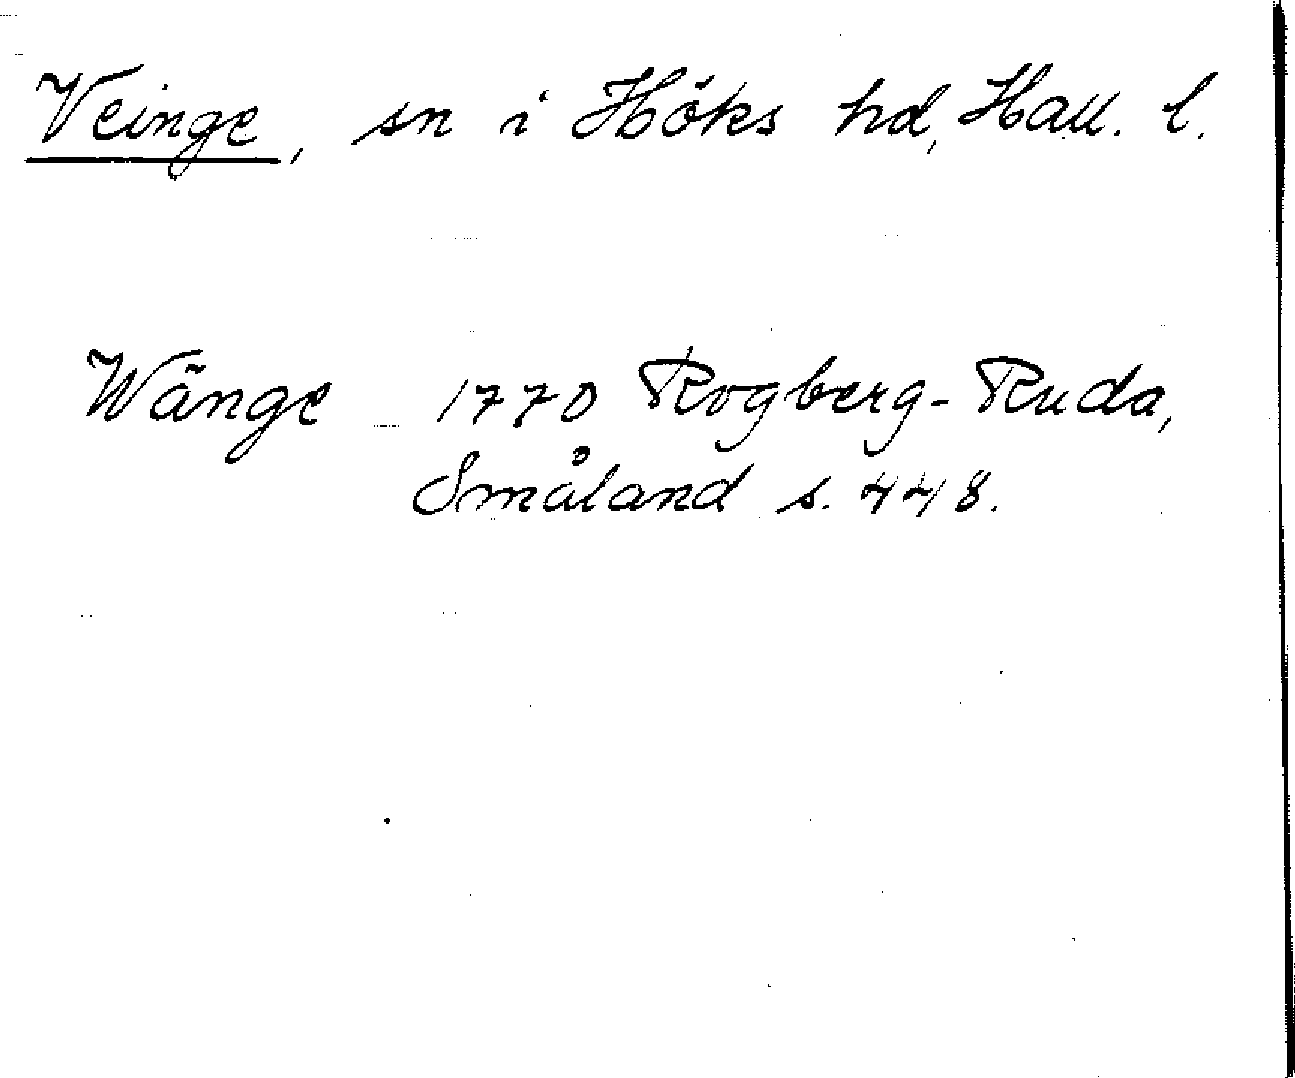 Veinge, sn i Höks hd, Hall. l.
Wänge 1770 Rogberg-Ruda,
Småland s. 448.